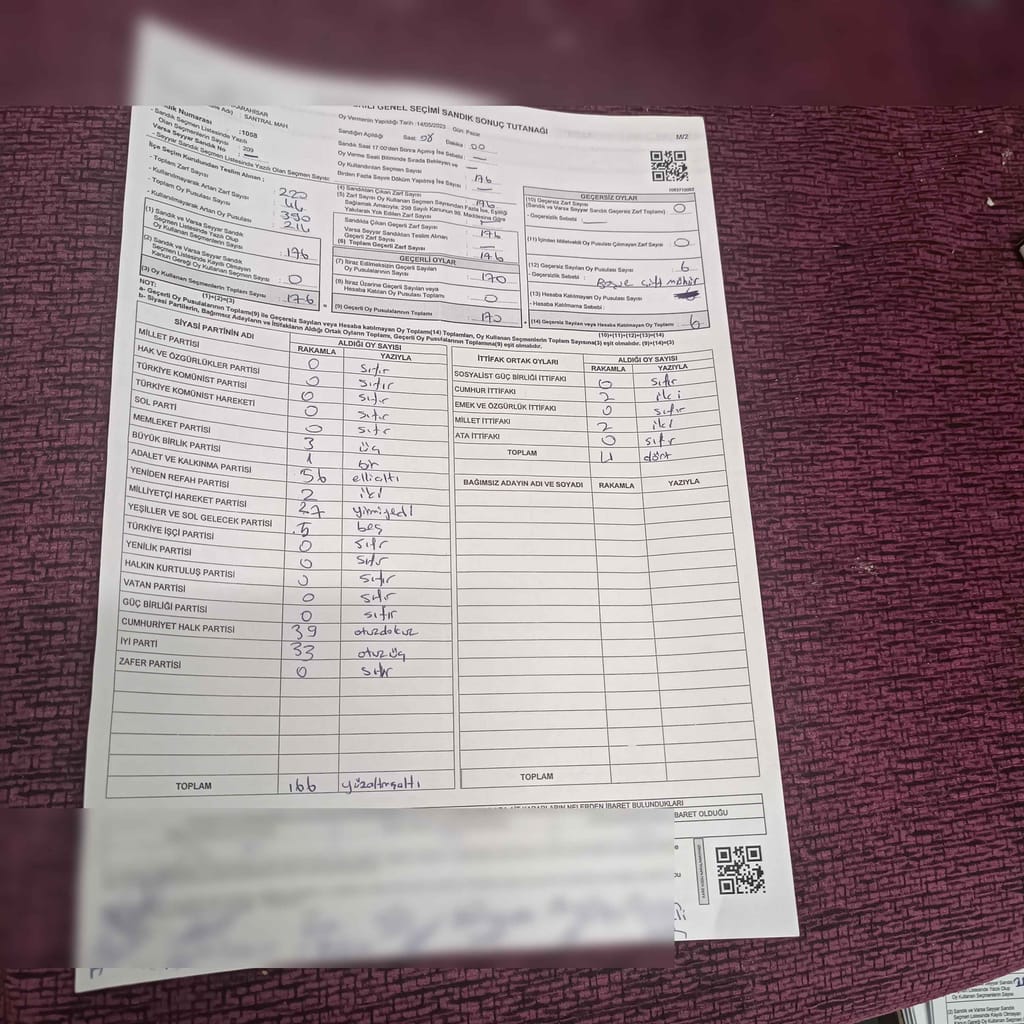 GENEL SEÇİMİ SANDIK SONUÇ TUTANAĞI
M/2
SANTRAL MAH
Sandık Numarası :1058
- Sandık Seçmen Listesinde Yazılı Olan Seçmenlerin Sayısı : 209
Varsa Seyyar Sandık No : —
- Seyyar Sandık Seçmen Listesinde Yazılı Olan Seçmen Sayısı:
Oy Vermenin Yapıldığı Tarih :14/05/2023 - Gün: Pazar
Sandığın Açıldığı Saat: 08 Dakika: 00
Sandık Saat 17.00'den Sonra Açılmış İse Sebebi : —
Oy Verme Saati Bitiminde Sırada Bekleyen ve Oy Kullandırılan Seçmen Sayısı : —
Birden Fazla Sayım Döküm Yapılmış İse Sayısı : —
İlçe Seçim Kurulundan Teslim Alınan ;
- Toplam Zarf Sayısı : 220
- Kullanılmayarak Artan Zarf Sayısı : 44
- Toplam Oy Pusulası Sayısı : 390
- Kullanılmayarak Artan Oy Pusulası : 214
(1) Sandık ve Varsa Seyyar Sandık Seçmen Listesinde Yazılı Olup Oy Kullanan Seçmenlerin Sayısı : 176
(2) Sandık ve Varsa Seyyar Sandık Seçmen Listesinde Kayıtlı Olmayan Kanun Gereği Oy Kullanan Seçmen Sayısı : 0
(3) Oy Kullanan Seçmenlerin Toplam Sayısı : 176
(1)+(2)=(3)
(4) Sandıktan Çıkan Zarf Sayısı : 176
(5) Zarf Sayısı Oy Kullanan Seçmen Sayısından Fazla İse, Eşitliği Sağlamak Amacıyla, 298 Sayılı Kanunun 98. Maddesine Göre Yakılarak Yok Edilen Zarf Sayısı
Sandıkta Çıkan Geçerli Zarf Sayısı : 176
Varsa Seyyar Sandıktan Teslim Alınan Geçerli Zarf Sayısı : —
(6) Toplam Geçerli Zarf Sayısı : 176
GEÇERLİ OYLAR
(7) İtiraz Edilmeksizin Geçerli Sayılan Oy Pusulalarının Sayısı : 170
(8) İtiraz Üzerine Geçerli Sayılan veya Hesaba Katılan Oy Pusulaları Toplamı : 0
(9) Geçerli Oy Pusulalarının Toplamı : 170
GEÇERSİZ OYLAR
(10) Geçersiz Zarf Sayısı (Sandık ve Varsa Seyyar Sandık Geçersiz Zarf Toplamı) : 0
- Geçersizlik Sebebi :
(11) İçinden Milletvekili Oy Pusulası Çıkmayan Zarf Sayısı : 0
(12) Geçersiz Sayılan Oy Pusulası Sayısı : 6
- Geçersizlik Sebebi : çift mühür
(13) Hesaba Katılmayan Oy Pusulası Sayısı :
- Hesaba Katılmama Sebebi :
(14) Geçersiz Sayılan veya Hesaba Katılmayan Oy Toplamı : 6
(10)+(11)+(12)+(13)=(14)
NOT:
a- Geçerli Oy Pusulalarının Toplamı(9) ile Geçersiz Sayılan veya Hesaba katılmayan Oy Toplamı(14) Toplamları, Oy Kullanan Seçmenlerin Toplam Sayısına(3) eşit olmalıdır. (9)+(14)=(3)
b- Siyasi Partilerin, Bağımsız Adayların ve İttifakların Aldığı Ortak Oyların Toplamı, Geçerli Oy Pusulalarının Toplamına(9) eşit olmalıdır.
SİYASİ PARTİNİN ADI ALDIĞI OY SAYISI
RAKAMLA YAZIYLA
MİLLET PARTİSİ 0 sıfır
HAK VE ÖZGÜRLÜKLER PARTİSİ 0 sıfır
TÜRKİYE KOMÜNİST PARTİSİ 0 sıfır
TÜRKİYE KOMÜNİST HAREKETİ 0 sıfır
SOL PARTİ 0 sıfır
MEMLEKET PARTİSİ 3 üç
BÜYÜK BİRLİK PARTİSİ 1 bir
ADALET VE KALKINMA PARTİSİ 56 ellialtı
YENİDEN REFAH PARTİSİ 2 iki
MİLLİYETÇİ HAREKET PARTİSİ 27 yirmiyedi
YEŞİLLER VE SOL GELECEK PARTİSİ 5 beş
TÜRKİYE İŞÇİ PARTİSİ 0 sıfır
YENİLİK PARTİSİ 0 sıfır
HALKIN KURTULUŞ PARTİSİ 0 sıfır
VATAN PARTİSİ 0 sıfır
GÜÇ BİRLİĞİ PARTİSİ 0 sıfır
CUMHURİYET HALK PARTİSİ 39 otuzdokuz
İYİ PARTİ 33 otuzüç
ZAFER PARTİSİ 0 sıfır
TOPLAM 166 yüzaltmışaltı
İTTİFAK ORTAK OYLARI ALDIĞI OY SAYISI
RAKAMLA YAZIYLA
SOSYALİST GÜÇ BİRLİĞİ İTTİFAKI 0 sıfır
CUMHUR İTTİFAKI 2 iki
EMEK VE ÖZGÜRLÜK İTTİFAKI 0 sıfır
MİLLET İTTİFAKI 2 iki
ATA İTTİFAKI 0 sıfır
TOPLAM 4 dört
BAĞIMSIZ ADAYIN ADI VE SOYADI RAKAMLA YAZIYLA
TOPLAM
KARARLARIN NELERDEN İBARET BULUNDUKLARI
BARET OLDUĞU